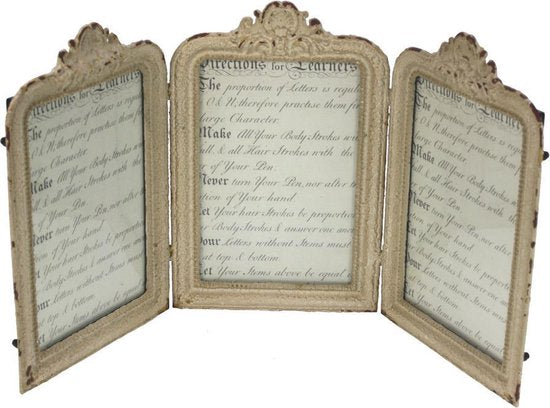 Directions for Learners
The proportion of Letters is regula
O & N, therefore practise them for
large Character.
Make All Your Body Strokes wi
ll, & all Hair Strokes with the
of Your Pen.
Never turn Your Pen, nor alter
tion of Your hand
Let Your hair Strokes be proportio
Body Strokes & answer one ano
Your Letters without Items must
at top & bottom.
Let Your Items above be equal
Directions for Learn
The proportion of Letters is regula
O & N, therefore practise them for
large Character.
Make All Your Body Strokes wi
ll, & all Hair Strokes with
of Your Pen.
Never turn Your Pen, nor alter
tion of Your hand
Let Your hair Strokes be proportio
Body Strokes & answer one
Your Letters without Items must
at top & bottom.
Directions for Learners
The proportion of Letters is regula
O & N, therefore practise them for
large Character.
Make All Your Body Strokes
ll, & all Hair Strokes with
of Your Pen.
Never turn Your Pen, nor alter
tion of Your hand.
Let Your hair Strokes be propor
Body Strokes & answer one
Your Letters without Items must
at top & bottom.
Let Your Items above be equal